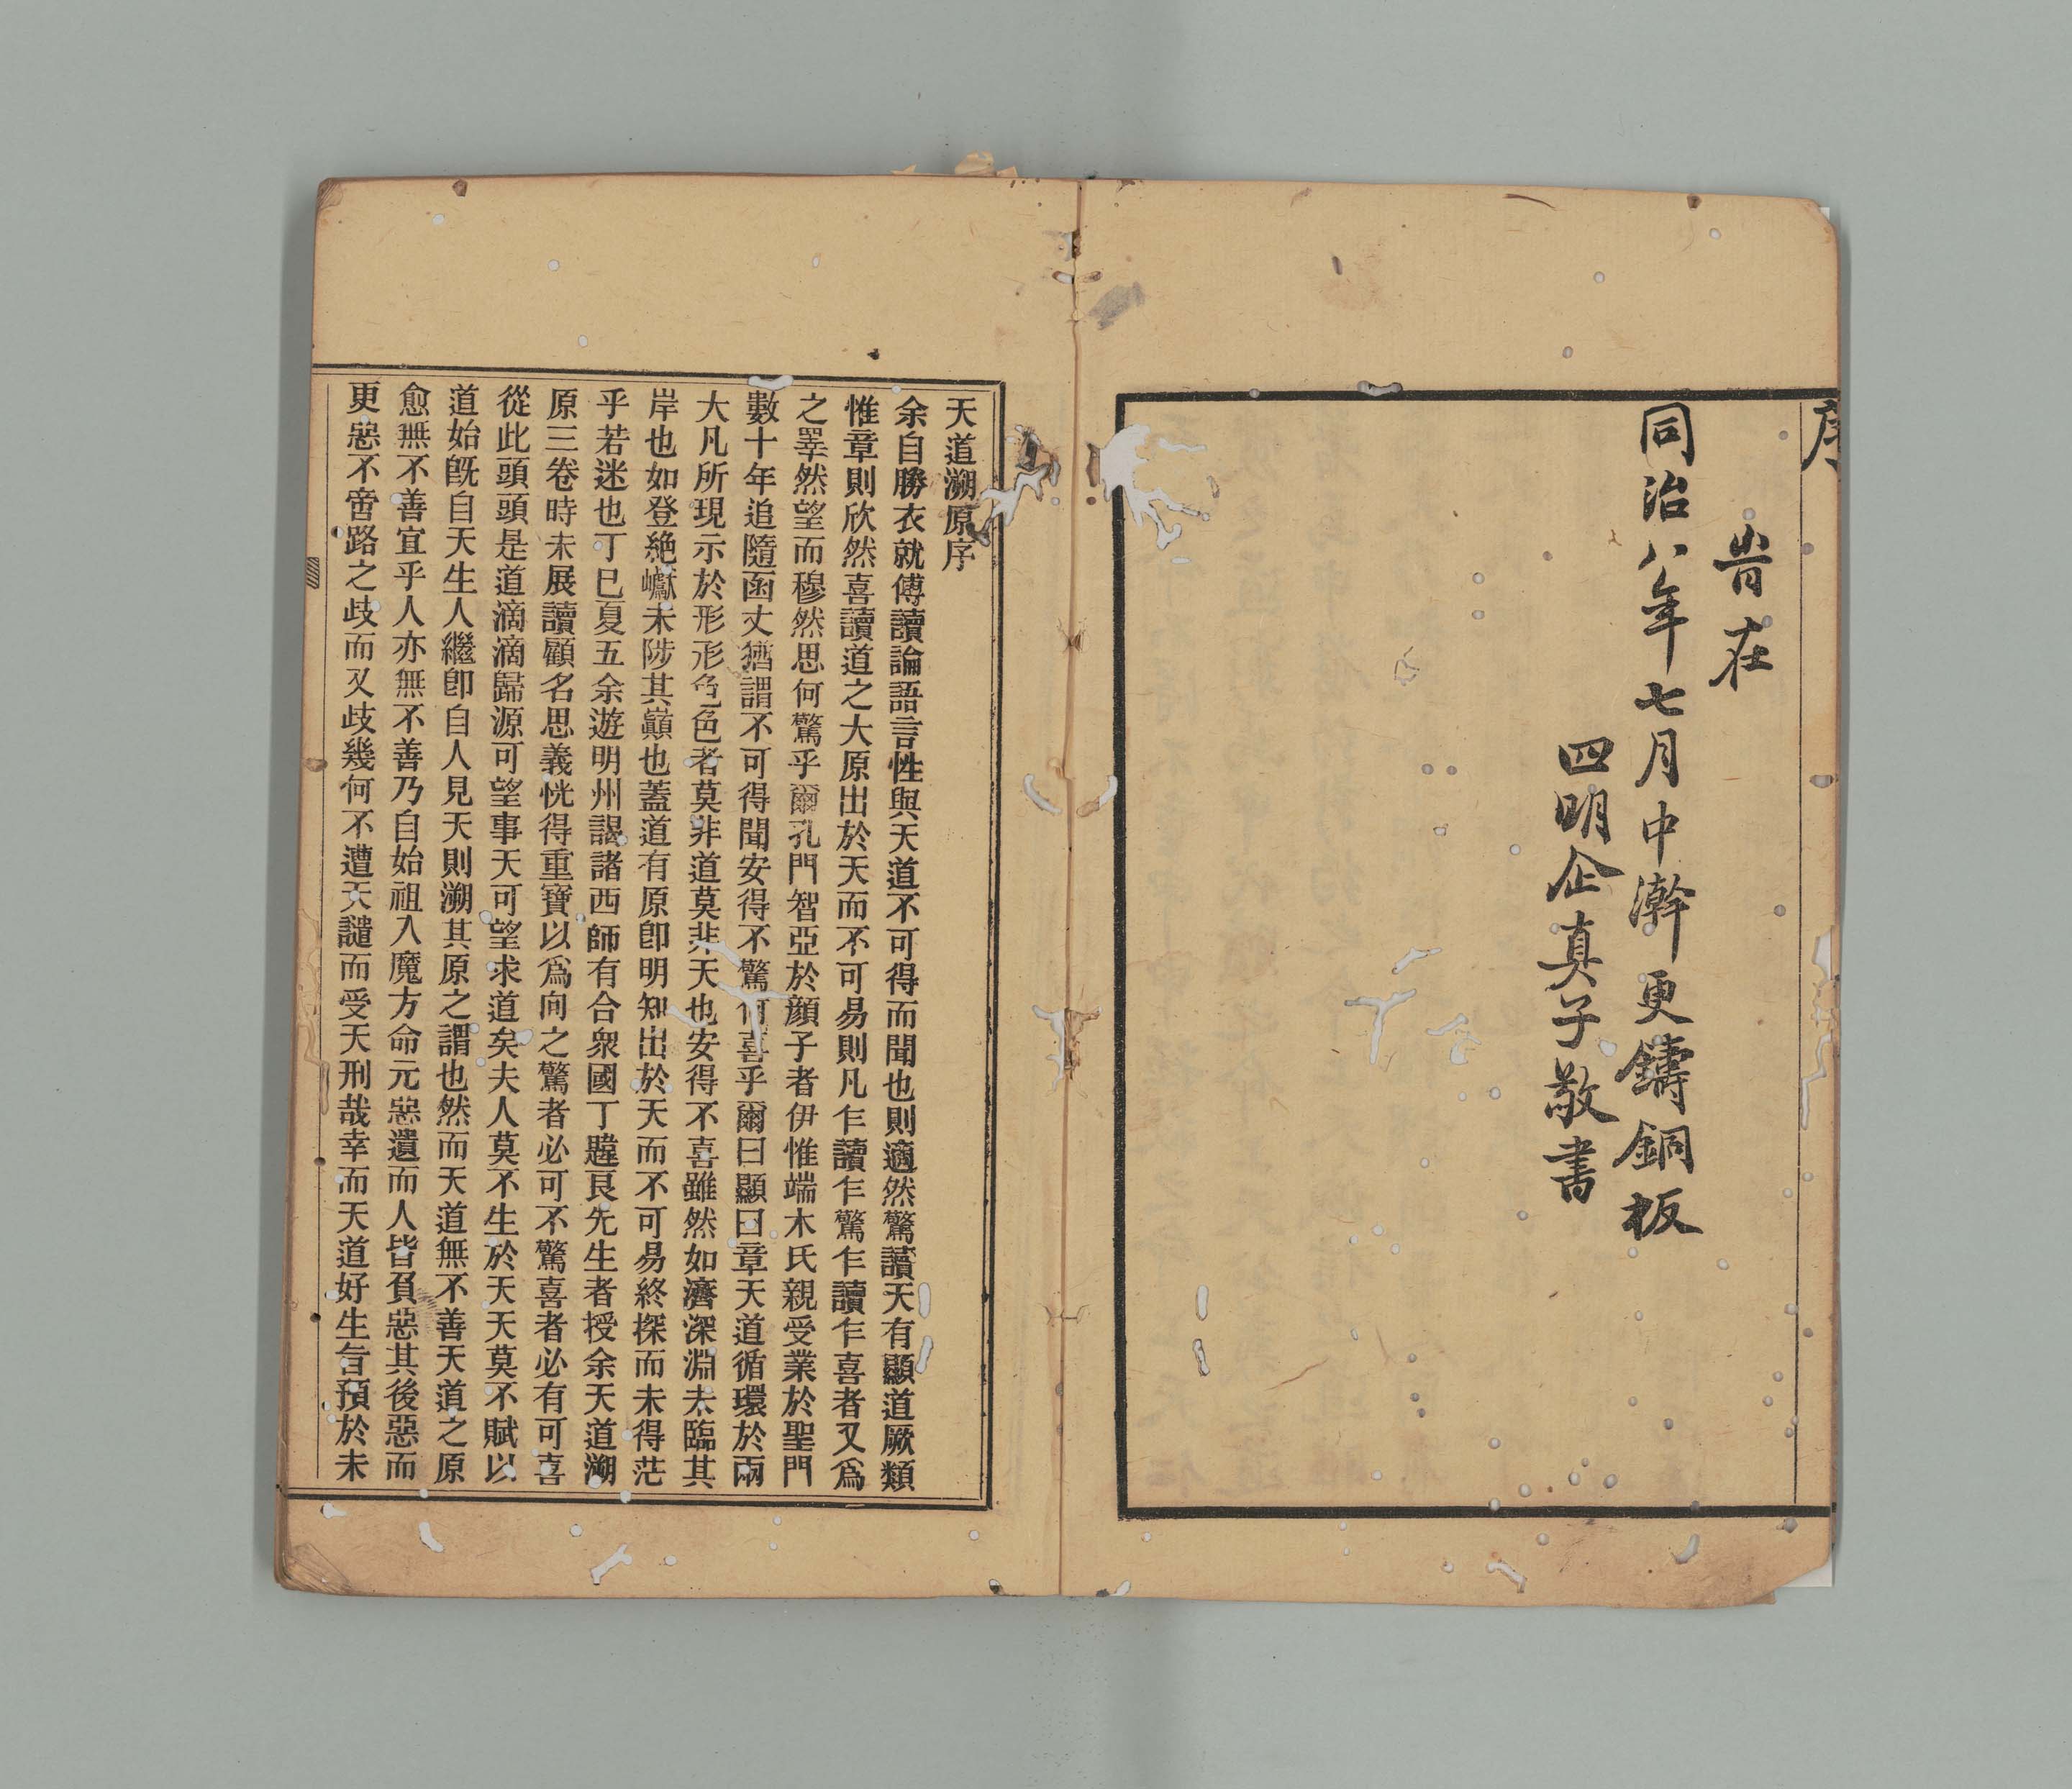 序
旹在
同治八年七月中澣更鑄銅板
四明企真子敬書
天道溯原序
余自勝衣就傅讀論語言性與天道不可得而聞也則適然驚讀天有顯道厥類
惟章則欣然喜讀道之大原出於天而不可易則凡乍讀乍驚乍讀乍喜者又爲
之睪然望而穆然思何驚乎爾孔門智亞於顔子者伊惟端木氏親受業於聖門
數十年追隨函丈猶謂不可得聞安得不驚何喜乎爾曰顯曰章天道循環於兩
大凡所現示於形形色色者莫非道莫非天也安得不喜雖然如濟深淵未臨其
岸也如登絶巘未陟其巔也蓋道有原卽明知出於天而不可易終探而未得茫
乎若迷也丁巳夏五余遊明州謁諸西師有合衆國丁韙良先生者授余天道溯
原三卷時未展讀顧名思義恍得重寶以爲向之驚者必可不驚喜者必有可喜
從此頭頭是道滴滴歸源可望事天可望求道矣夫人莫不生於天天莫不賦以
道始旣自天生人繼卽自人見天則溯其原之謂也然而天道無不善天道之原
愈無不善宜乎人亦無不善乃自始祖入魔方命元惡遺而人皆負惡其後惡而
更惡不啻路之歧而又歧幾何不遭天譴而受天刑哉幸而天道好生旨預於未